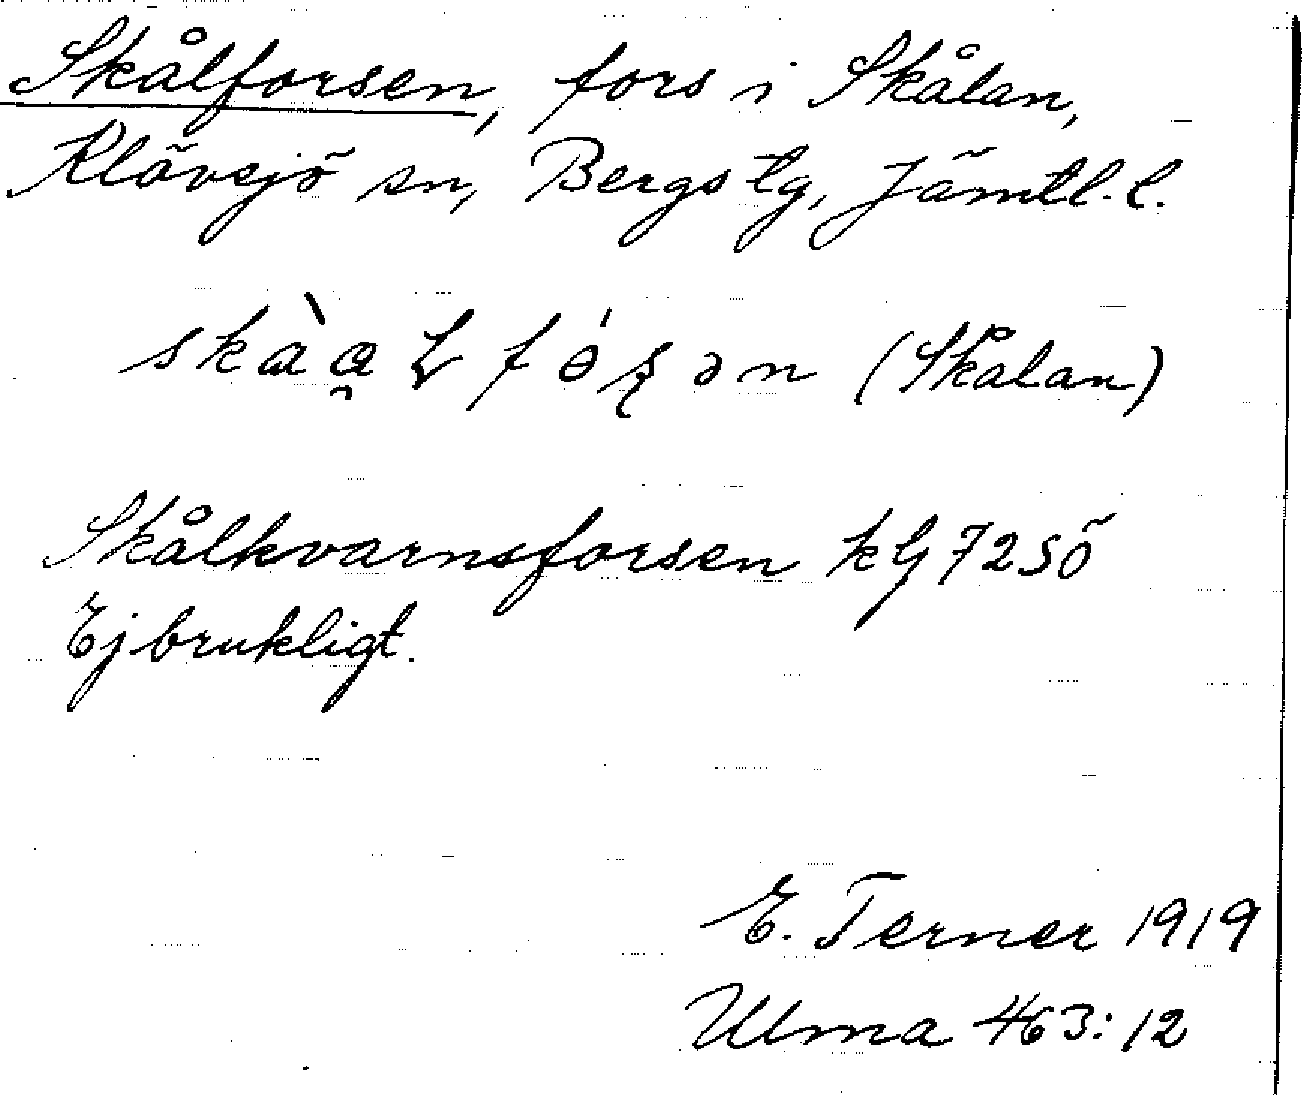 Skålforsen, fors i Skålan,
Klövsjö sn, Bergs tg, Jämtl. l.
(Skålan)
Skålkvarnsforsen kG 72 SÖ
Ej brukligt.
E. Terner 1919
Ulma 463:12